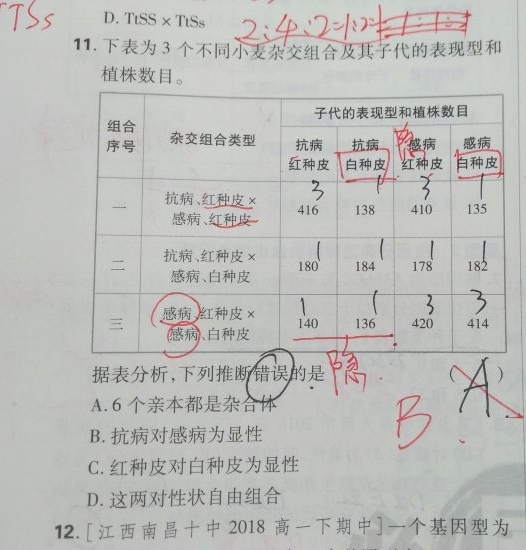 TTSs
D. TtSS × TtSs
2:4:2=1:2=1
11. 下表为 3 个不同小麦杂交组合及其子代的表现型和
植株数目。
组合序号 杂交组合类型 子代的表现型和植株数目
抗病 抗病 隐 感病 感病
红种皮 白种皮 红种皮 白种皮
3 1 3 1
一 抗病、红种皮×
感病、红种皮 416 138 410 135
1 1 1 1
二 抗病、红种皮×
感病、白种皮 180 184 178 182
1 1 3 3
三 感病、红种皮×
感病、白种皮 140 136 420 414
隐
据表分析,下列推断错误的是 ( A )
A. 6 个亲本都是杂合体
B
B. 抗病对感病为显性
C. 红种皮对白种皮为显性
D. 这两对性状自由组合
12. [江西南昌十中 2018 高一下期中]一个基因型为